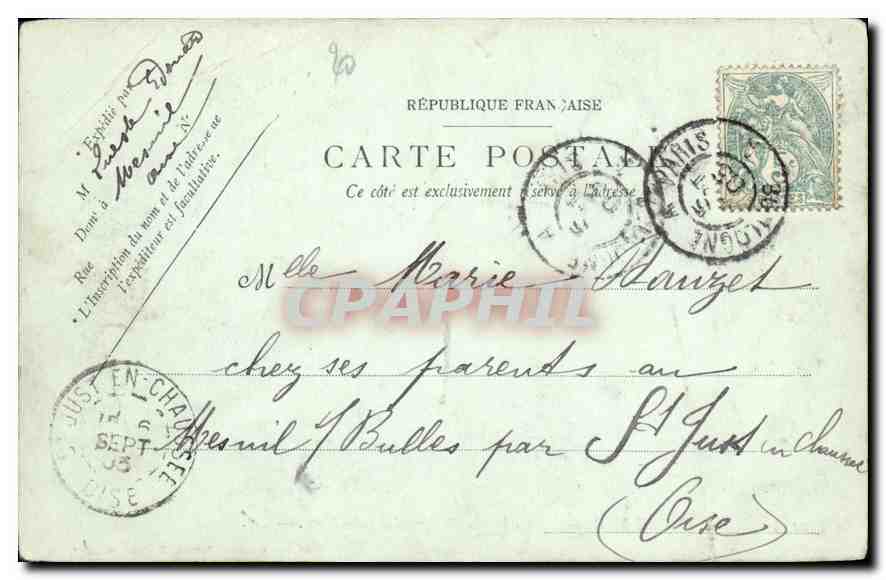 20
RÉPUBLIQUE FRANÇAISE
CARTE POSTALE
Ce côté est exclusivement réservé à l'adresse
Expédié par
M Édouard
Dem^t à Mesnil
Rue N°
L'Inscription du nom et de l'adresse de
l'expéditeur est facultative.
PARIS
BOULOGNE
Melle Marie Vauzet
chez ses parents au
Mesnil s/ Bulles par St Just en chaussée
(Oise)
ST JUST-EN-CHAUSSÉE
6
SEPT
03
OISE
CPAPHIL